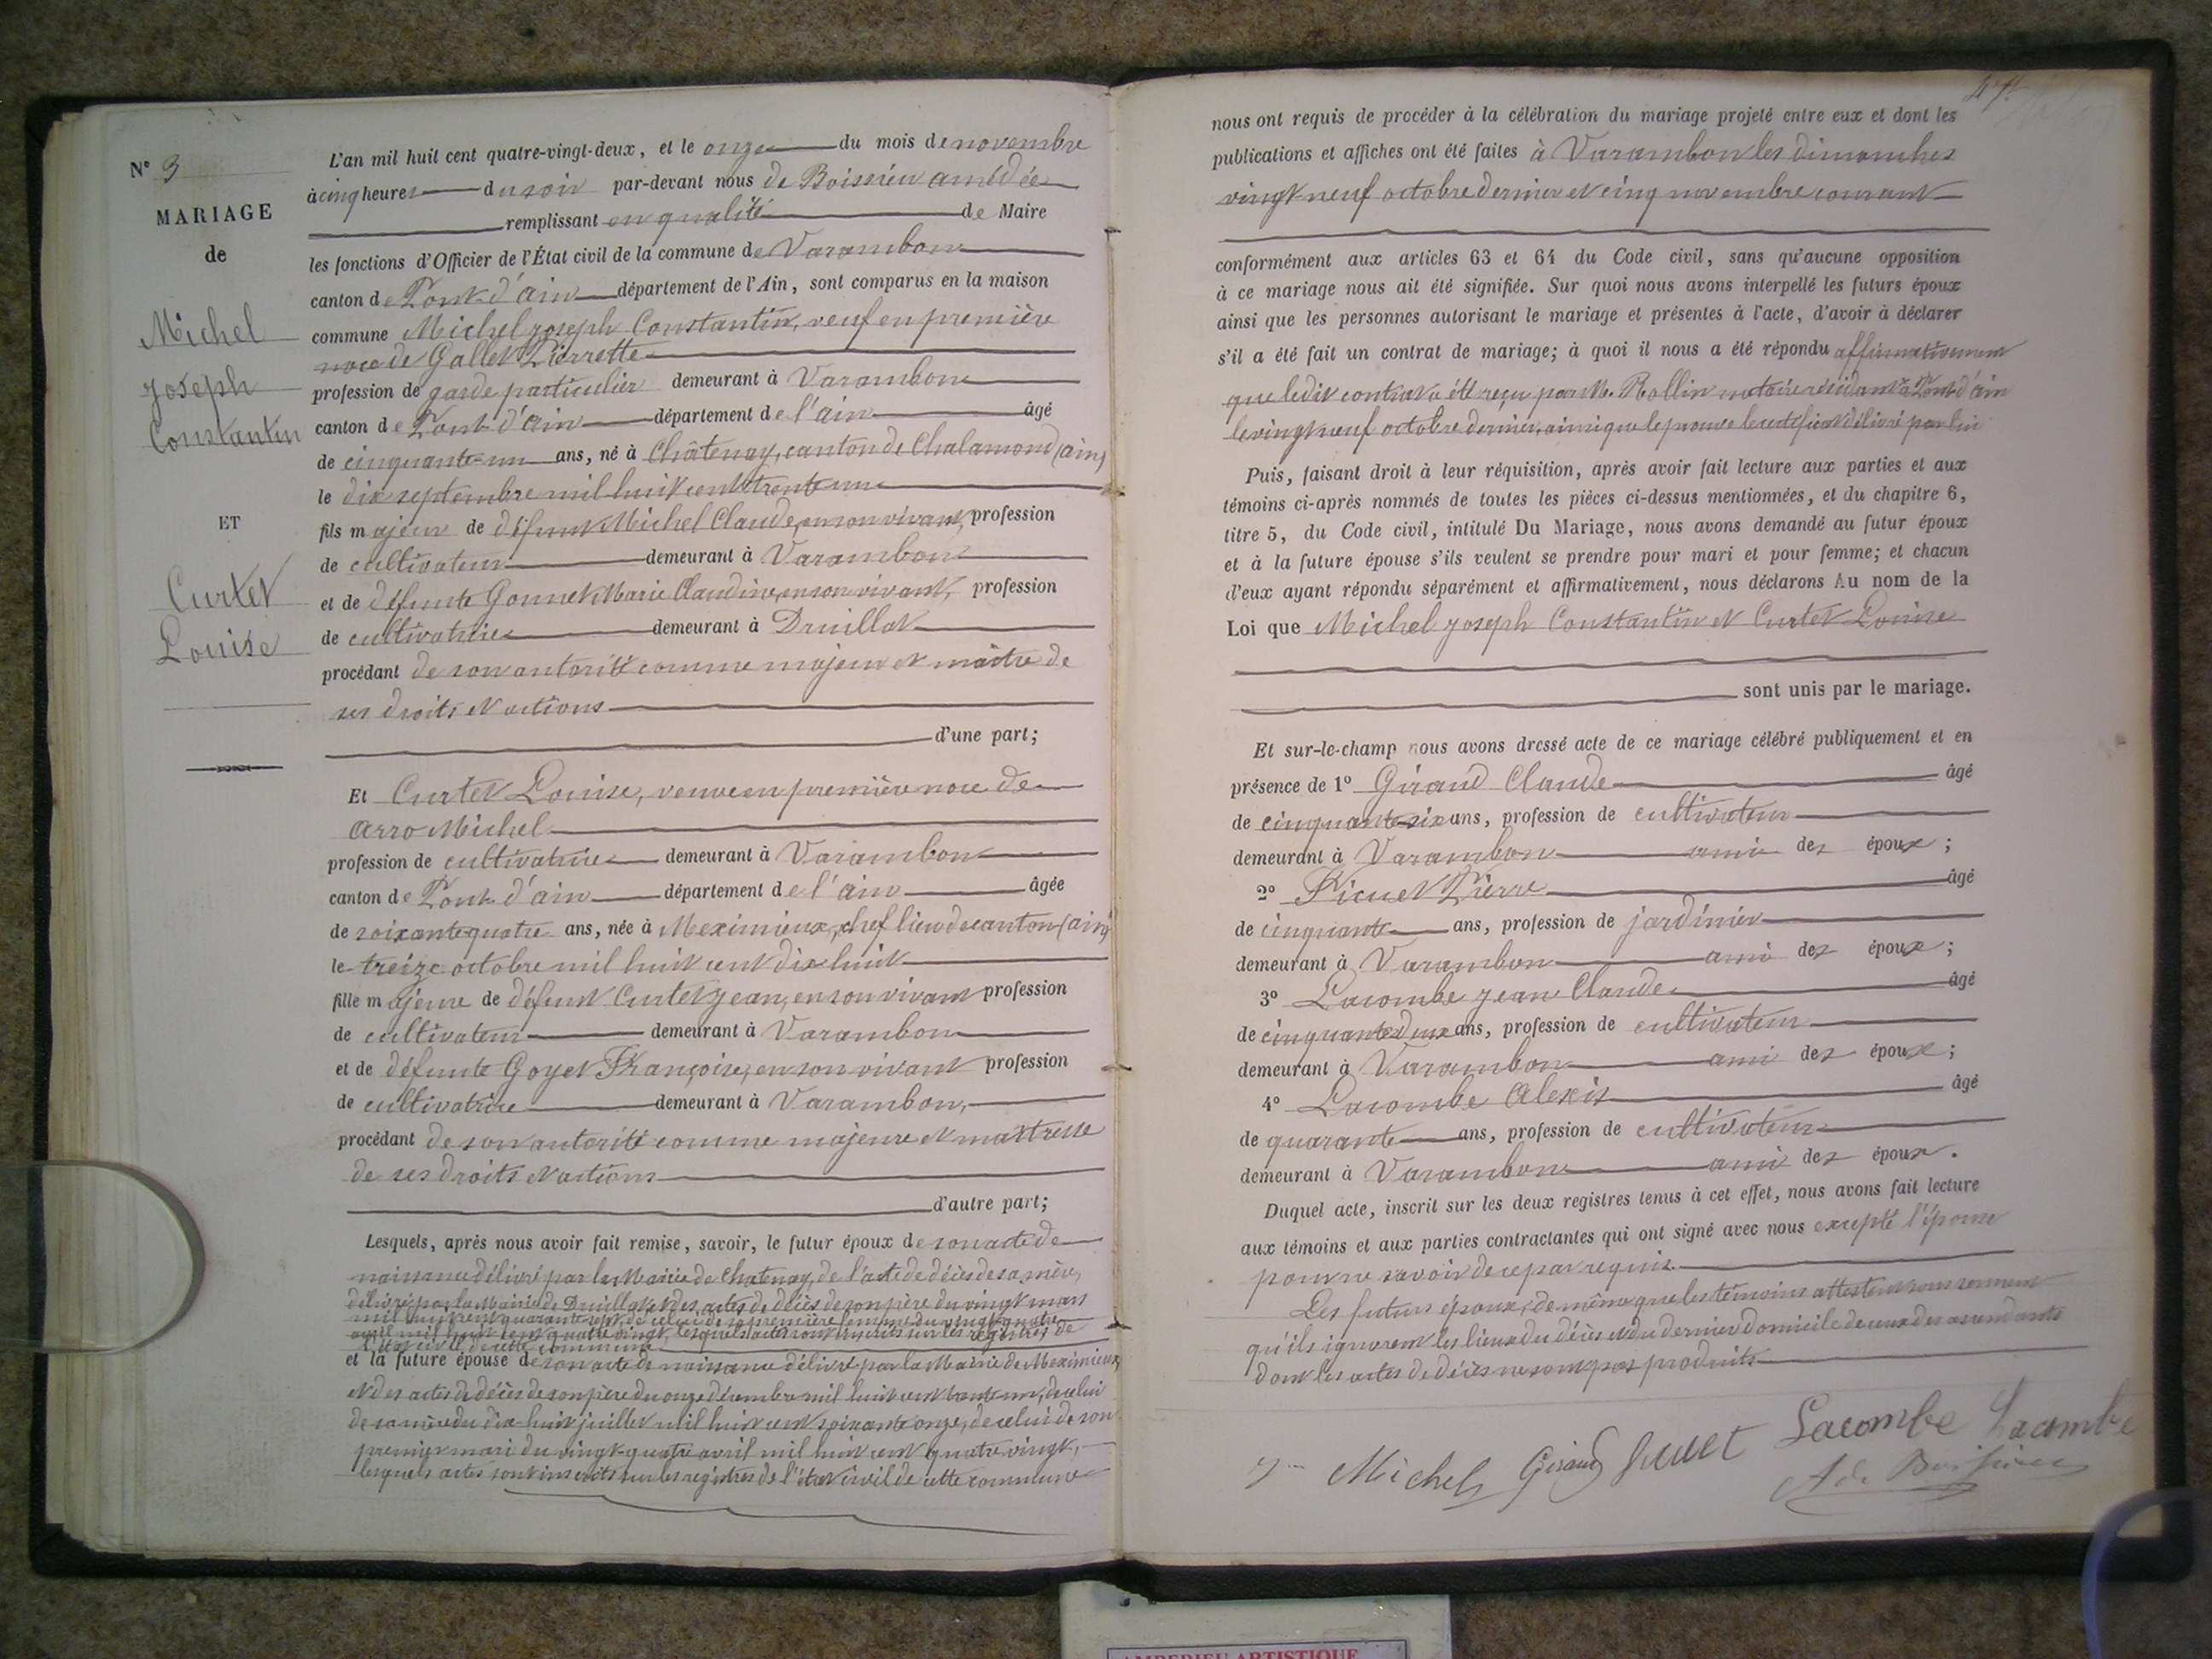 N° 3
MARIAGE
de
Michel
Joseph
Constantin
ET
Curtet
Louise
L'an mil huit cent quatre-vingt-deux, et le onze du mois de novembre
à cinq heures du soir par-devant nous de Boissieu amédée
remplissant en qualité de Maire
les fonctions d'Officier de l'État civil de la commune de Varambon
canton de Pont-d'ain département de l'Ain, sont comparus en la maison
commune Michel Joseph Constantin, veuf en première
noce de Gallet Pierrette
profession de garde particulier demeurant à Varambon
canton de Pont-d'ain département de l'ain âgé
de cinquante-un ans, né à Châtenay, canton de Chalamond (ain)
le dix septembre mil huit cent trente un
fils majeur de défunt Michel Claude, en son vivant, profession
de cultivateur demeurant à Varambon
et de défunte Gonnet Marie Claudine, en son vivant, profession
de cultivatrice demeurant à Druillat
procédant de son autorité comme majeur et maître de
ses droits et actions
d'une part;
Et Curtet Louise, veuve en première noce de
Arro Michel
profession de cultivatrice demeurant à Varambon
canton de Pont-d'ain département de l'ain âgée
de soixante-quatre ans, née à Meximieux, chef lieu de canton (ain)
le treize octobre mil huit cent dix huit
fille majeure de défunt Curtet Jean, en son vivant profession
de cultivateur demeurant à Varambon
et de défunte Goyet Françoise, en son vivant profession
de cultivatrice demeurant à Varambon,
procédant de son autorité comme majeure et maîtresse
de ses droits et actions
d'autre part;
Lesquels, après nous avoir fait remise, savoir, le futur époux de son acte de
naissance délivré par la Mairie de Chatenay, de l'acte de décès de sa mère,
délivré par la Mairie de Druillat et des actes de décès de son père du vingt mars
mil huit cent quarante sept, de celui de sa première femme du vingt quatre
avril mil huit cent quatre vingt, lesquels actes sont inscrits sur les registres de
l'état civil de cette commune
et la future épouse de son acte de naissance délivré par la Mairie de Meximieux
et des actes de décès de son père du onze décembre mil huit cent trente un, de celui
de sa mère du dix-huit juillet mil huit cent soixante onze, de celui de son
premier mari du vingt-quatre avril mil huit cent quatre vingt,
lesquels actes sont inscrits sur les registres de l'état civil de cette commune
47
nous ont requis de procéder à la célébration du mariage projeté entre eux et dont les
publications et affiches ont été faites à Varambon les dimanches
vingt-neuf octobre dernier et cinq novembre courant
conformément aux articles 63 et 64 du Code civil, sans qu'aucune opposition
à ce mariage nous ait été signifiée. Sur quoi nous avons interpellé les futurs époux
ainsi que les personnes autorisant le mariage et présentes à l'acte, d'avoir à déclarer
s'il a été fait un contrat de mariage; à quoi il nous a été répondu affirmativement
que ledit contrat a été reçu par Me. Rollin notaire résidant à Pont-d'ain
le vingt neuf octobre dernier, ainsi que le prouve le certificat délivré par lui
Puis, faisant droit à leur réquisition, après avoir fait lecture aux parties et aux
témoins ci-après nommés de toutes les pièces ci-dessus mentionnées, et du chapitre 6,
titre 5, du Code civil, intitulé Du Mariage, nous avons demandé au futur époux
et à la future épouse s'ils veulent se prendre pour mari et pour femme; et chacun
d'eux ayant répondu séparément et affirmativement, nous déclarons Au nom de la
Loi que Michel Joseph Constantin et Curtet Louise
sont unis par le mariage.
Et sur-le-champ nous avons dressé acte de ce mariage célébré publiquement et en
présence de 1° Giraud Claude âgé
de cinquante-six ans, profession de cultivateur
demeurant à Varambon ami des époux;
2° Picuet Pierre âgé
de cinquante ans, profession de jardinier
demeurant à Varambon ami des époux;
3° Lacombe Jean Claude âgé
de cinquante deux ans, profession de cultivateur
demeurant à Varambon ami des époux;
4° Lacombe Alexis âgé
de quarante ans, profession de cultivateur
demeurant à Varambon ami des époux.
Duquel acte, inscrit sur les deux registres tenus à cet effet, nous avons fait lecture
aux témoins et aux parties contractantes qui ont signé avec nous excepté l'épouse
pour ne savoir de ce par requis.
Les futurs époux, de même que les témoins attestent sous serment
qu'ils ignorent les lieux du décès et du dernier domicile de ceux des ascendants
dont les actes de décès ne sont pas produits
Michel Giraud Lacombe Lacombe
A de Boissieu
AMBERIEU ARTISTIQUE